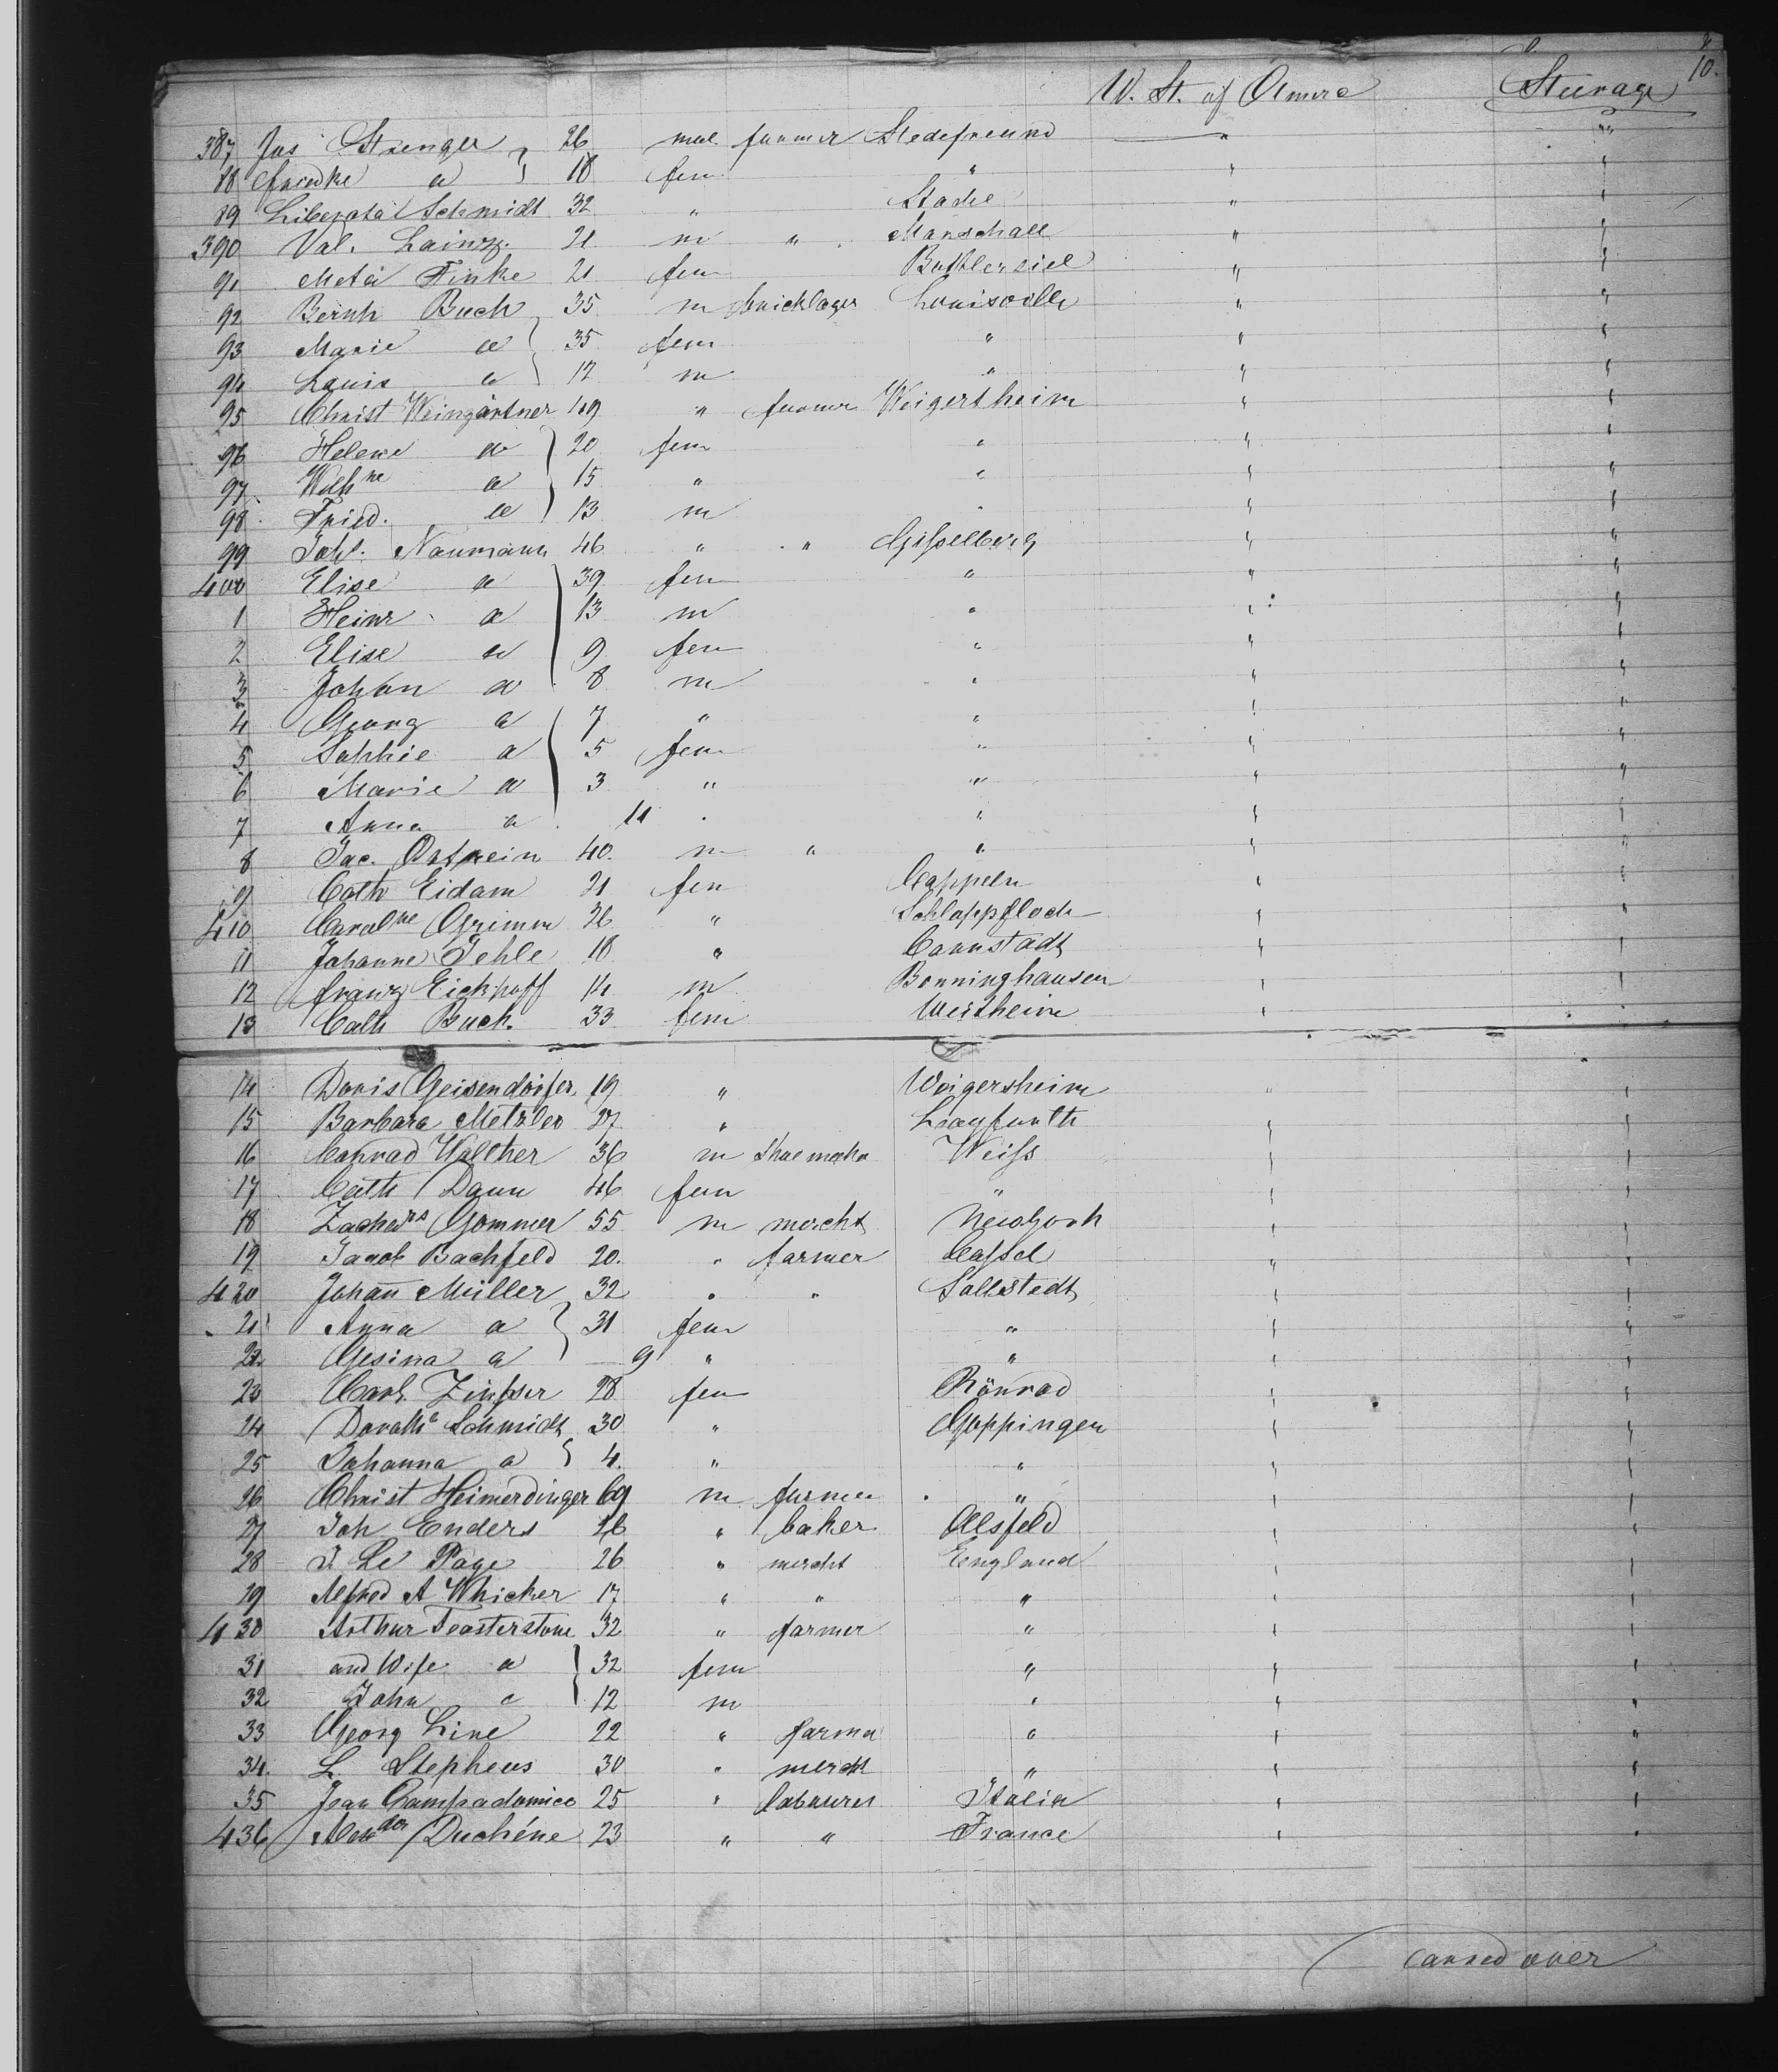 10.
U. St. of Amera Steerage
387 Jos Strenger 26 mal farmer Stedefreund " "
88 Friedke a 18 fem " " "
89 Liberata Schmidt 32 " Stade " "
390 Val. Lainz. 21 m " Marschall " "
91 Meta Finke 21 fem Buttlersiel " "
92 Bernh Buch 35 m bricklayer Louisville " "
93 Marie a 35 fem " " "
94 Louis a 12 m " " "
95 Christ Weingärtner 49 " farmer Weigertheim " "
96 Helene a 20 fem " " "
97 Wilhne a 15 " " " "
98 Fried. a 13 m " " "
99 Joh. Naumann 46 " " Gisselberg " "
400 Elise a 39 fem " " "
1 Heinr a 13 m " " "
2 Elise a 9 fem " " "
3 Johan a 8 m " " "
4 Georg a 7 " " " "
5 Sophie a 5 fem " " "
6 Marie a 3 " " " "
7 Anna a 11 " " " "
8 Jac. Ostrein 40. m " " " "
9 Cath Eidam 21 fem Cappeln " "
410 Carolne Grimm 26 " Schlappfloch " "
11 Johanne Jehle 18 " Cannstadt " "
12 Franz Eickhoff 14 m Bonninghausen " "
13 Cath Buch. 33 fem Wertheim " "
14 Doris Geisendörfer 19 " Weigersheim " "
15 Barbara Metzler 27 " " "
16 Conrad Walther 36 m Shoemaker Weiss " "
17 Cath Daun 46 fem " " "
18 Gommer 55 m mercht New York " "
19 Jacob Bachfeld 20. " farmer Cassel " "
420 Johann Müller 32 " " Sallstedt " "
21 Anna a 31 fem " " "
22 Gesina a 9 " " " "
23 Carh Zinsser 28 fem Rönrad " "
24 Dorothe Schmidt 30 " Goppingen " "
25 Johanna a 4. " " " "
26 Christ Heimerdinger 69 m farmer " " "
27 Joh Enders 26 " baker Alsfeld " "
28 J Le Page 26 " mercht England " "
29 Alfred A Whicker 17 " " " " "
430 Arthur Feasterstone 32 " farmer " " "
31 and Wife a 32 fem " " "
32 John a 12 m " " "
33 Georg Line 22 " farmer " " "
34. L. Stephens 30 " mercht " " "
35 Jean Campadamico 25 " labourer Italia " "
436 Alexder Duchéne 23 " " France " "
carried over